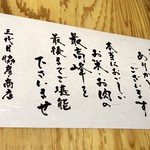 ありがとう
ございます
本当においしい
お米、お肉の
最高峰を
最後までご堪能
下さいませ
三代目 脇彦商店